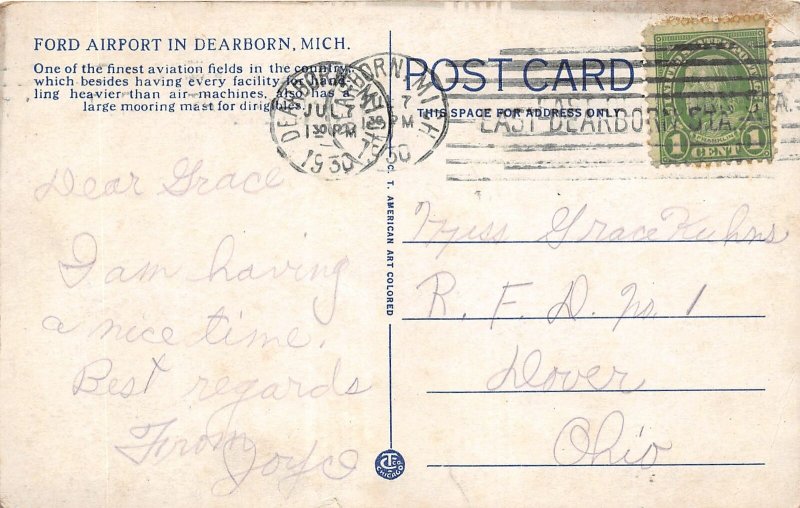 FORD AIRPORT IN DEARBORN, MICH.
One of the finest aviation fields in the country
which besides having every facility for hand-
ling heavier than air machines, also has a
large mooring mast for dirigibles.
Dear Grace
I am having
a nice time.
Best regards
From
Joyce
C. T. AMERICAN ART COLORED
CHICAGO
POST CARD
THIS SPACE FOR ADDRESS ONLY
DEARBORN, MICH.
JUL 7
1 30 PM
1930
EAST DEARBORN STA.
1 CENT 1
Miss Grace Kuhns
R. F. D. No. 1
Dover
Ohio